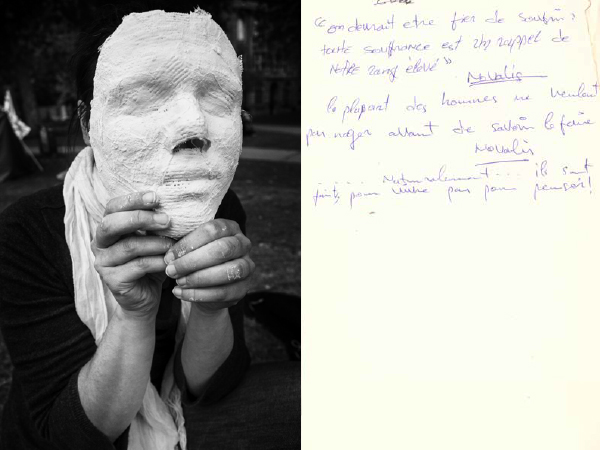 " on devrait etre fier de soufrir :
toute souffrance est un rappel de
notre rang élevé "
Novalis
la plupart des hommes ne veulent
pas nager avant de savoir le faire
Novalis
..... Naturellement... ils sont
faits pour vivre pas pour penser!